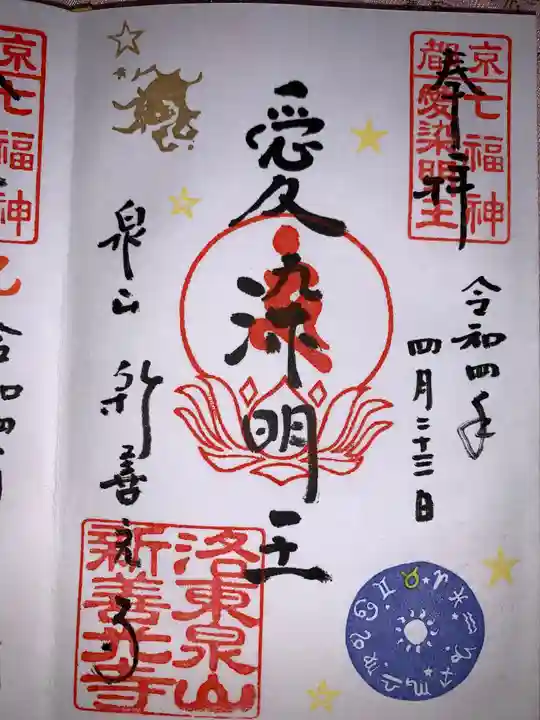 奉拝
京七福神
都愛染明王
令和四年
四月二十三日
愛染明王
泉山 新善光寺
洛東泉山
新善光寺
京
七福神
令和四
♈♉♊♋♌♍♎♏♐♑♒♓